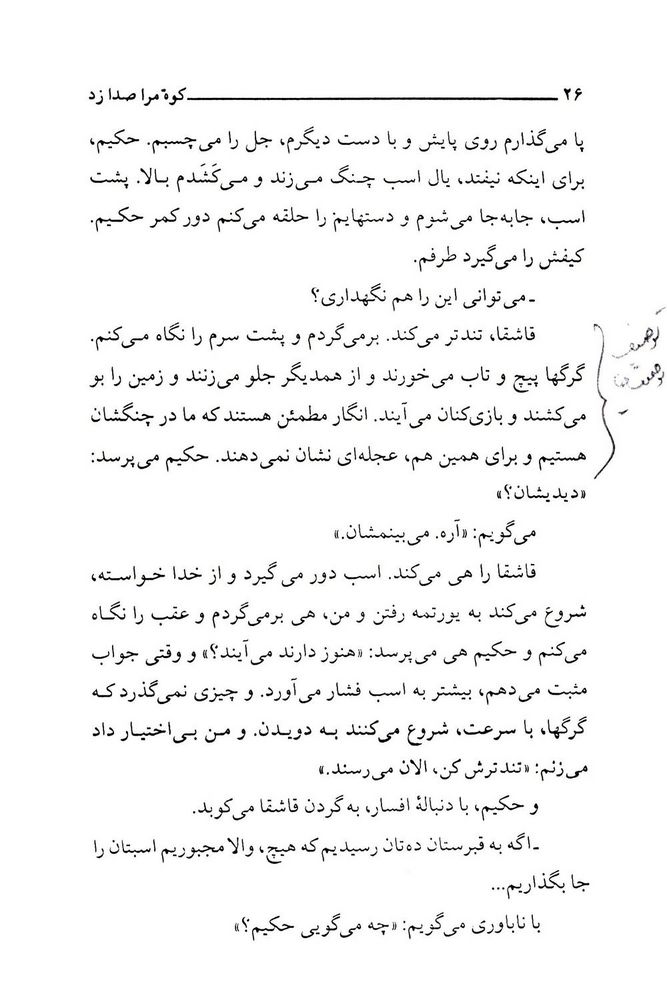 ۲۶ کوه مرا صدا زد
پا می‌گذارم روی پایش و با دست دیگرم، جل را می‌چسبم. حکیم،
برای اینکه نیفتد، یال اسب چنگ می‌زند و می‌کَشَدم بالا. پشت
اسب، جابه‌جا می‌شوم و دستهایم را حلقه می‌کنم دور کمر حکیم.
کیفش را می‌گیرد طرفم.
ـ می‌توانی این را هم نگهداری؟
قاشقا، تندتر می‌کند. برمی‌گردم و پشت سرم را نگاه می‌کنم.
گرگها پیچ و تاب می‌خورند و از همدیگر جلو می‌زنند و زمین را بو
می‌کشند و بازی‌کنان می‌آیند. انگار مطمئن هستند که ما در چنگشان
هستیم و برای همین هم، عجله‌ای نشان نمی‌دهند. حکیم می‌پرسد:
«دیدیشان؟»
می‌گویم: «آره. می‌بینمشان.»
قاشقا را هی می‌کند. اسب دور می‌گیرد و از خدا خواسته،
شروع می‌کند به یورتمه رفتن و من، هی برمی‌گردم و عقب را نگاه
می‌کنم و حکیم هی می‌پرسد: «هنوز دارند می‌آیند؟» و وقتی جواب
مثبت می‌دهم، بیشتر به اسب فشار می‌آورد. و چیزی نمی‌گذرد که
گرگها، با سرعت، شروع می‌کنند به دویدن. و من بی‌اختیار داد
می‌زنم: «تندترش کن، الان می‌رسند.»
و حکیم، با دنبالهٔ افسار، به گردن قاشقا می‌کوبد.
ـ اگه به قبرستان ده‌تان رسیدیم که هیچ، والا مجبوریم اسبتان را
جا بگذاریم...
با ناباوری می‌گویم: «چه می‌گویی حکیم؟»
توصیف